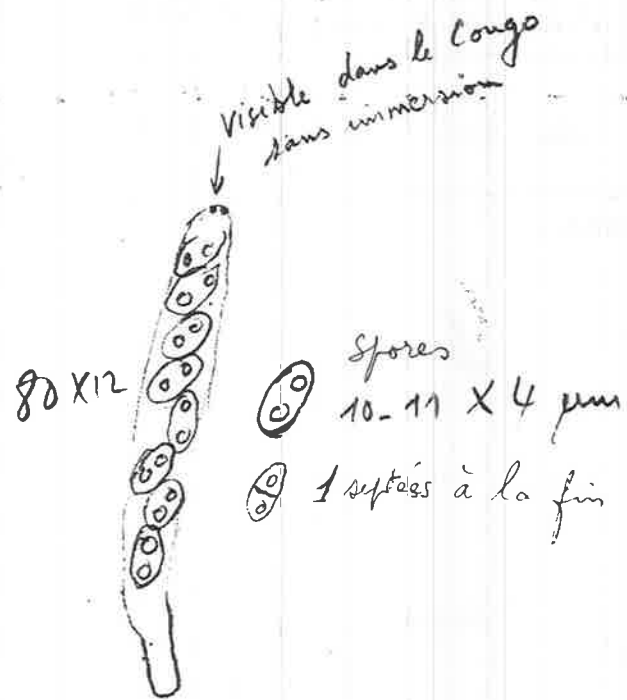 visible dans le Congo
sans immersion
80 X 12
Spores
10-11 X 4 µm
1 septées à la fin